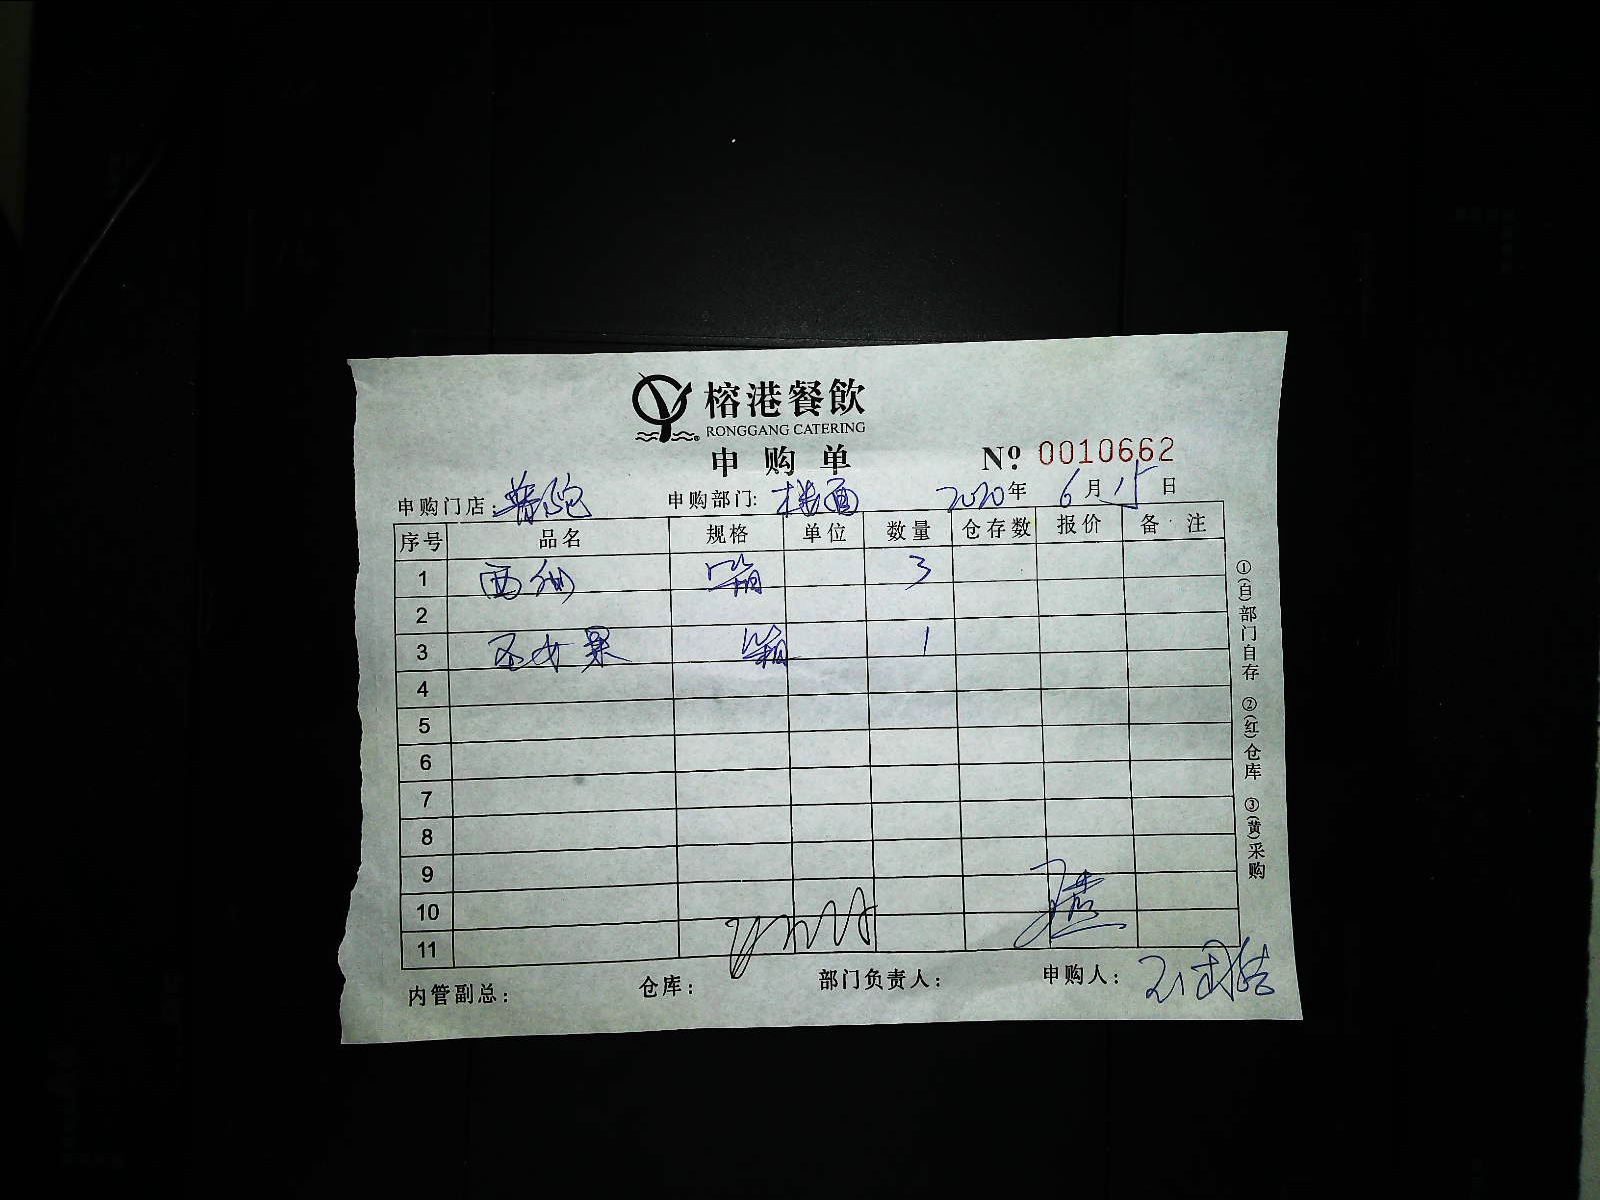 榕港餐飲
RONGGANG CATERING
申购单
№ 0010662
申购门店: 普陀 申购部门: 楼面 2020年 6月 15日
序号 品名 规格 单位 数量 仓存数 报价 备注
1 西柚 箱 3
2
3 圣女果 箱 1
4
5
6
7
8
9
10
11
内管副总: 仓库: 部门负责人: 申购人:
①(白)部门自存 ②(红)仓库 ③(黄)采购